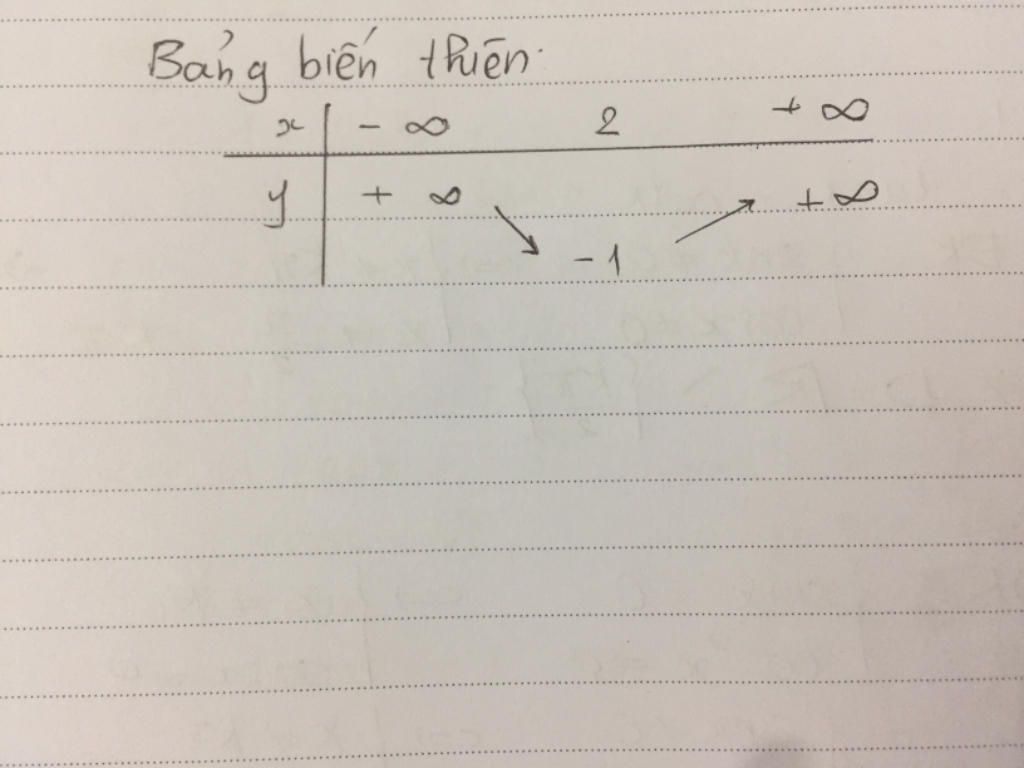 Bảng biến thiên
x - ∞ 2 + ∞
y + ∞ ↘ -1 ↗ +∞